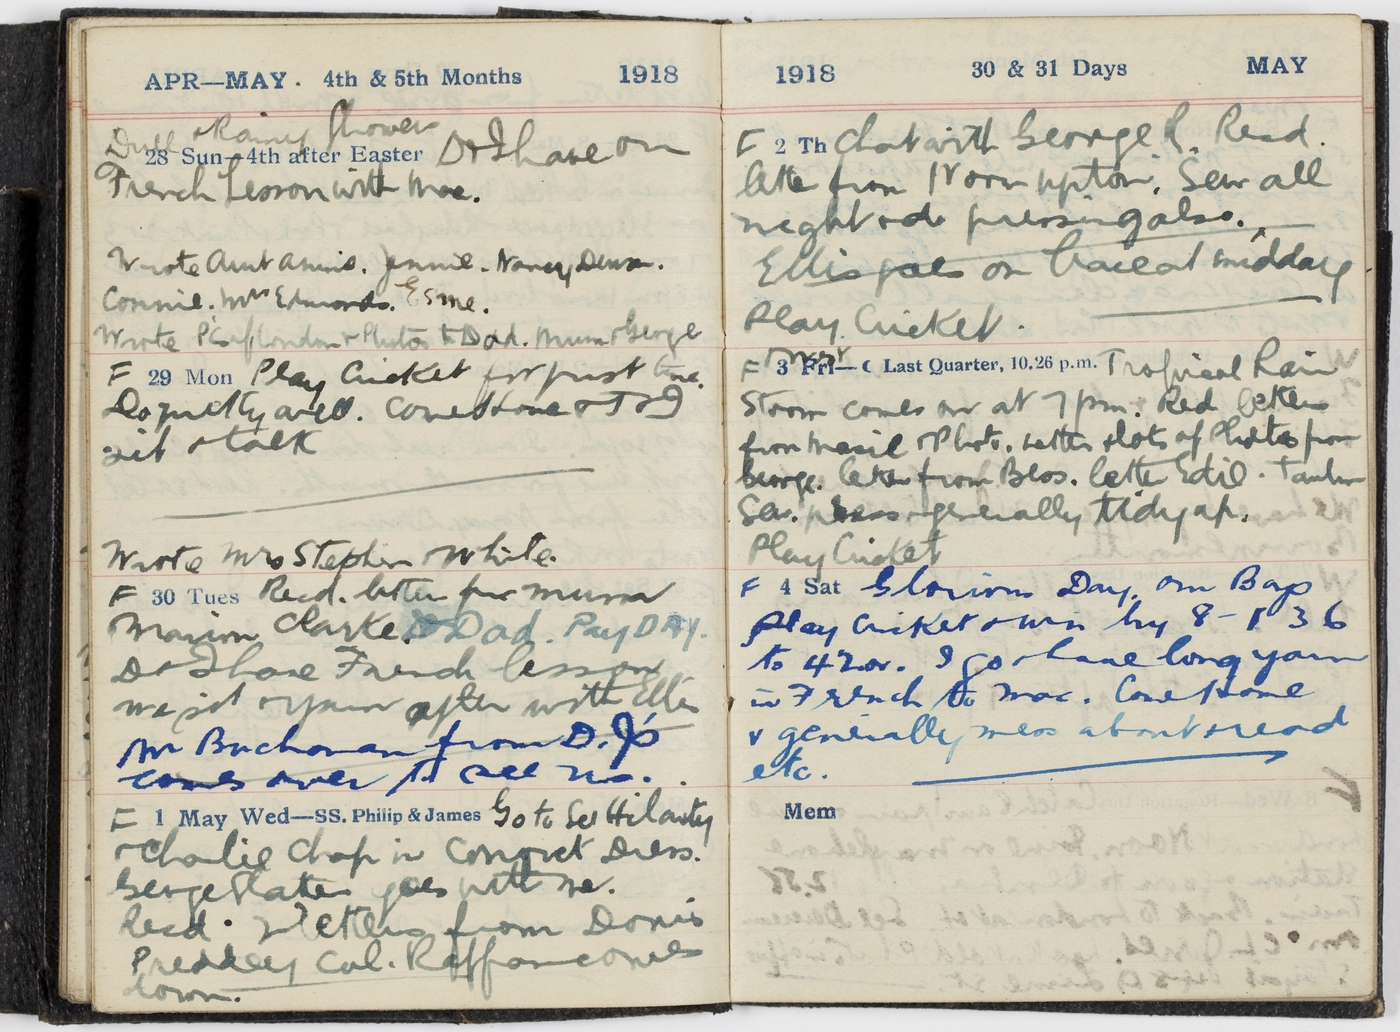 APR—MAY. 4th & 5th Months 1918
Dull & Rainy Showers
28 Sun—4th after Easter D & I have our
French Lesson with Mac.
Wrote Aunt Annie. Jennie. Nancy
Connie. Mrs Edmonds. Esme.
Wrote P.C. of London & Photos to Dad. Mum & George
F 29 Mon Play Cricket for first time.
Do pretty well. Come home & T & I
sit & talk
Wrote Mrs Stephen & White.
F 30 Tues Recd. letter from Mum
Marion Clarke. & Dad. Pay Day.
D & I have French lesson
we sit & yarn after with Ellis
Mr Buchanan from D.J's
comes over to see us.
F 1 May Wed—SS. Philip & James Go to See Hilarity
& Charlie Chap in Convict Dress.
George goes with me.
Recd. 2 letters from Doris
Preddey Col. comes
down.
1918 30 & 31 Days MAY
F 2 Th Chat with George R. Recd.
letter from Norm Upton. Sew all
night & do pressing also.
Ellis goes on leave at midday
Play Cricket.
F 3 Fri—☾ Last Quarter, 10.26 p.m. Tropical Rain
Storm comes on at 7 pm. Recd letters
from & Photo. Letter & lots of Photos from
George. letter from Beos. letter Edie.
Sew. press & generally tidy up.
Play Cricket
F 4 Sat Glorious Day. Our Boys
Play Cricket & win by 8 - 136
to 42 or. I go & have long yarn
in French to Mac. Come home
& generally mess about & read
etc.
Mem